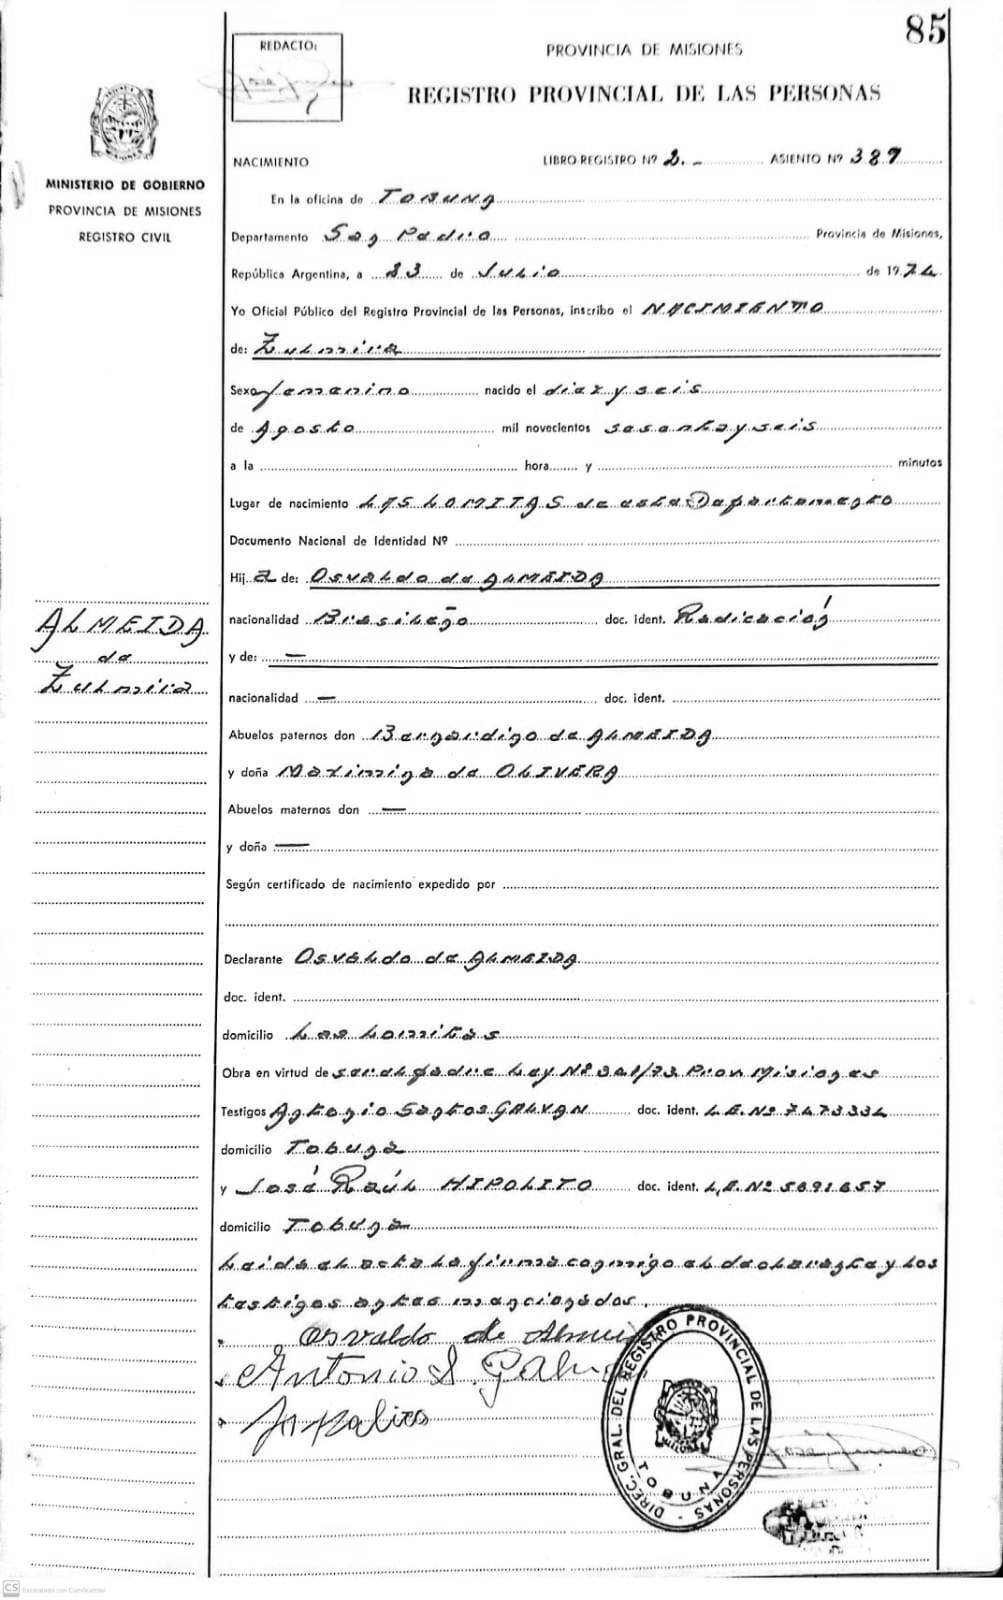 85
REDACTO:
PROVINCIA DE MISIONES
REGISTRO PROVINCIAL DE LAS PERSONAS
MINISTERIO DE GOBIERNO
PROVINCIA DE MISIONES
REGISTRO CIVIL
NACIMIENTO LIBRO REGISTRO Nº 2.- ASIENTO Nº 387
En la oficina de TOBUNA
Departamento San Pedro Provincia de Misiones,
República Argentina, a 23 de Julio de 1974
Yo Oficial Público del Registro Provincial de las Personas, inscribo el NACIMIENTO
de: Zulmira
Sexo femenino nacido el diez y seis
de Agosto mil novecientos sesenta y seis
a la hora y minutos
Lugar de nacimiento LAS LOMITAS de este Departamento
Documento Nacional de Identidad Nº
Hija de: Osvaldo de ALMEIDA
nacionalidad Brasileño doc. ident. Radicación
y de: —
nacionalidad — doc. ident.
Abuelos paternos don Bernardino de ALMEIDA
y doña Maximina de OLIVERA
Abuelos maternos don —
y doña —
Según certificado de nacimiento expedido por
ALMEIDA
de
Zulmira
Declarante Osvaldo de ALMEIDA
doc. ident.
domicilio Las Lomitas
Obra en virtud de ser el padre Ley Nº 341/73 Prov Misiones
Testigos Antonio Santos GALVAN doc. ident. L.E. Nº 7473334
domicilio Tobuna
y José Raúl HIPOLITO doc. ident. L.E. Nº 5691657
domicilio Tobuna
Leida el acta la firma conmigo el declarante y los
testigos antes mencionados.
Osvaldo de Almeida
Antonio S. Galvan
DIREC. GRAL. DEL REGISTRO PROVINCIAL DE LAS PERSONAS -
TOBUNA
CS Escaneado con CamScanner